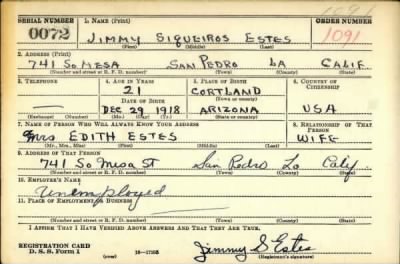 1091
SERIAL NUMBER
1. NAME (Print)
ORDER NUMBER
0072
JIMMY SIQUEIROS ESTES
1091
(First) (Middle) (Last)
2. ADDRESS (Print)
741 SO MESA SAN PEDRO LA CALIF.
(Number and street or R. F. D. number) (Town) (County) (State)
3. TELEPHONE
4. AGE IN YEARS
5. PLACE OF BIRTH
6. COUNTRY OF CITIZENSHIP
21
CORTLAND
DATE OF BIRTH
(Town or county)
DEC 29 1918
ARIZONA
USA
(Mo.) (Day) (Yr.)
(State or country)
7. NAME OF PERSON WHO WILL ALWAYS KNOW YOUR ADDRESS
8. RELATIONSHIP OF THAT PERSON
Mrs EDITH ESTES
WIFE
(Mr., Mrs., Miss) (First) (Middle) (Last)
9. ADDRESS OF THAT PERSON
741 So Mesa St San Pedro Lo Calif
(Number and street or R. F. D. number) (Town) (County) (State)
10. EMPLOYER'S NAME
Unemployed
11. PLACE OF EMPLOYMENT OR BUSINESS
(Number and street or R. F. D. number) (Town) (County) (State)
I AFFIRM THAT I HAVE VERIFIED ABOVE ANSWERS AND THAT THEY ARE TRUE.
REGISTRATION CARD
D. S. S. Form 1
Jimmy S Estes
(Registrant's signature)